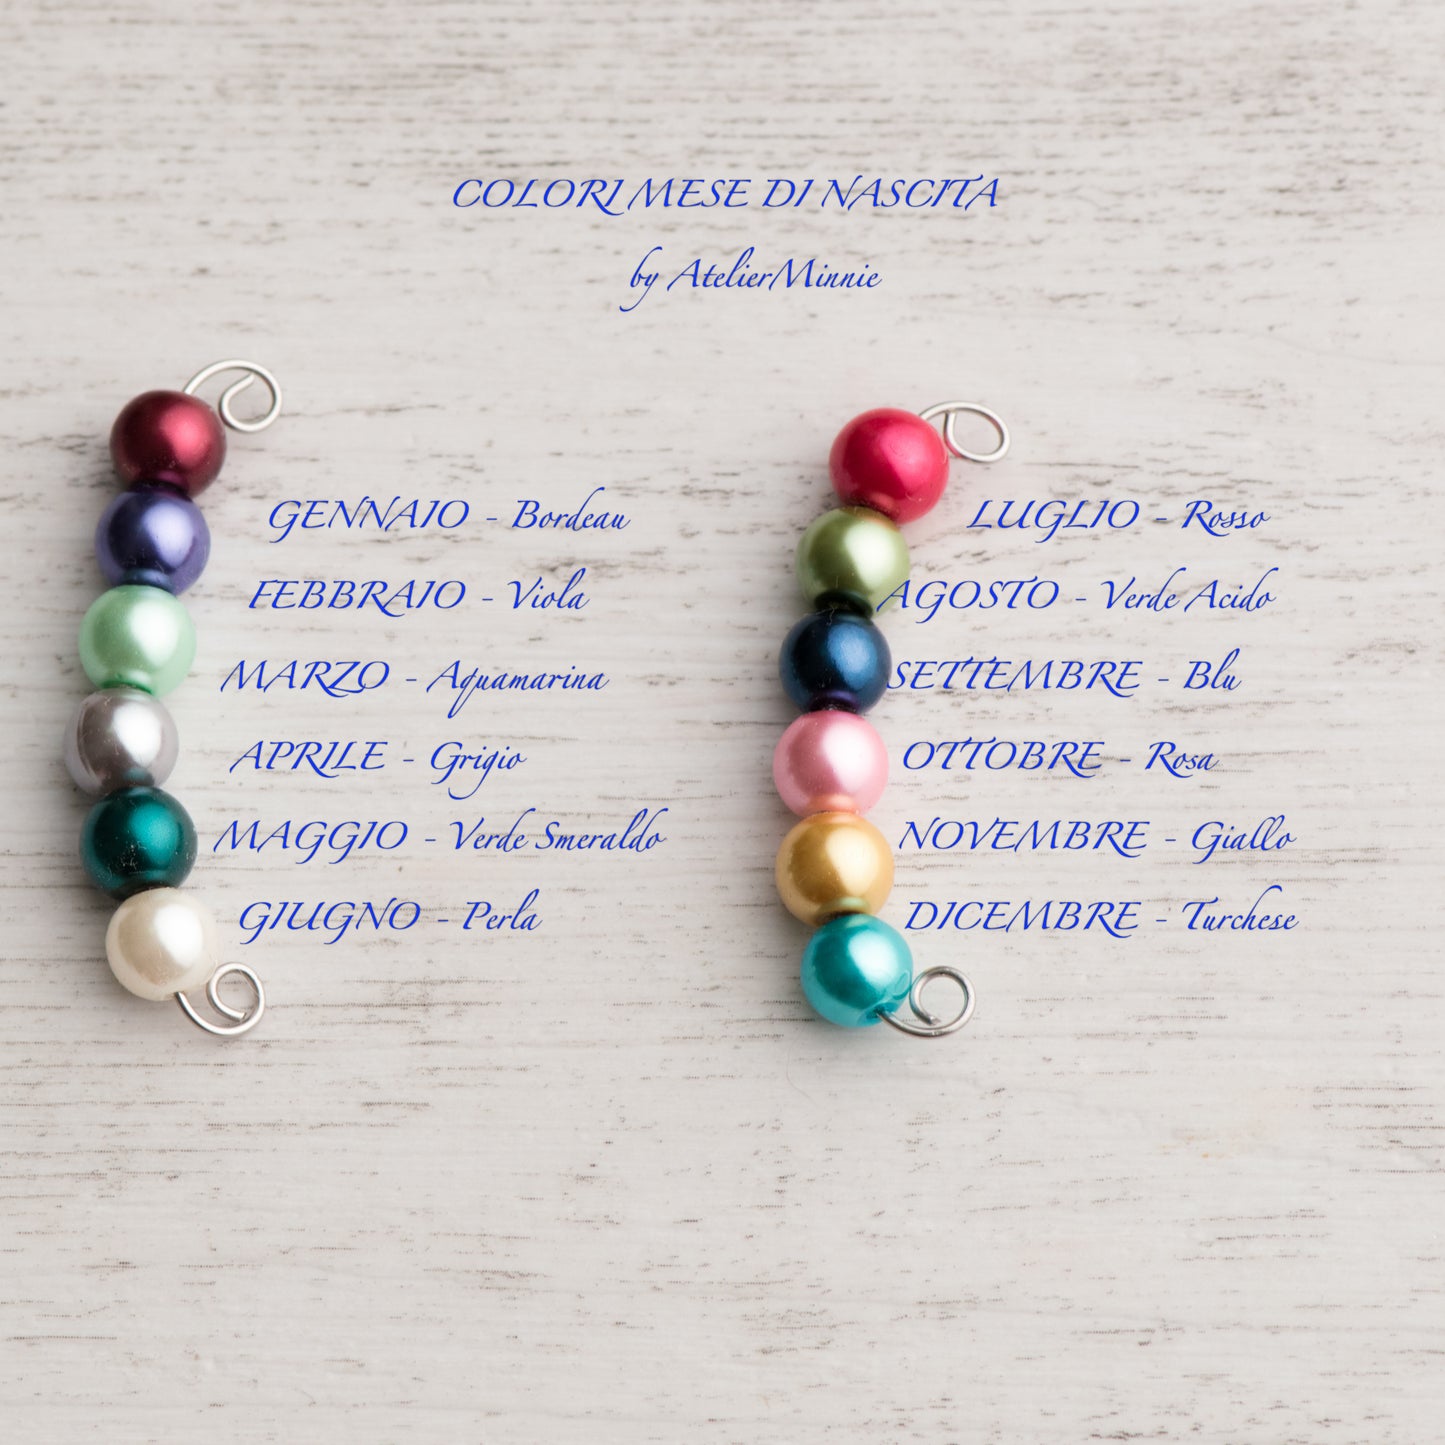 COLORI MESE DI NASCITA
by AtelierMinnie
GENNAIO - Bordeau
FEBBRAIO - Viola
MARZO - Aquamarina
APRILE - Grigio
MAGGIO - Verde Smeraldo
GIUGNO - Perla
LUGLIO - Rosso
AGOSTO - Verde Acido
SETTEMBRE - Blu
OTTOBRE - Rosa
NOVEMBRE - Giallo
DICEMBRE - Turchese